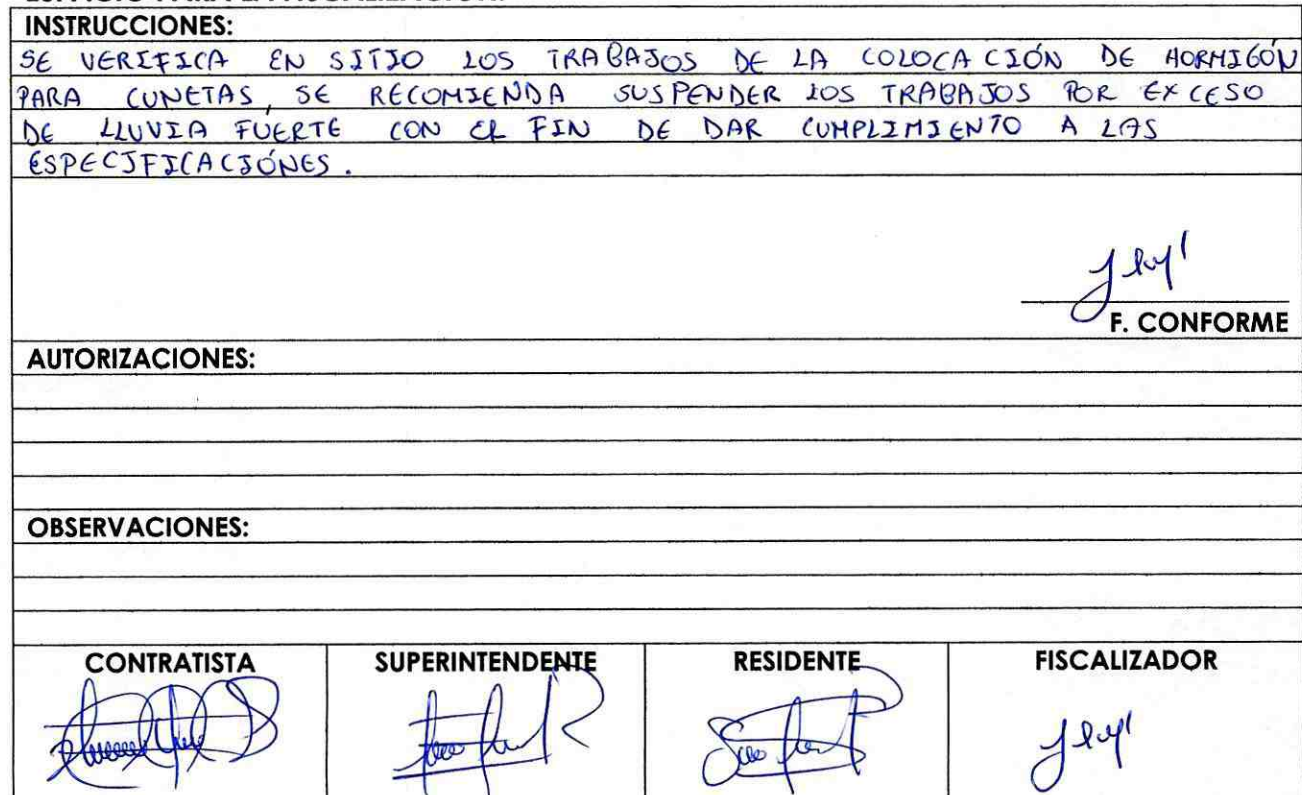 INSTRUCCIONES:
SE VERIFICA EN SITIO LOS TRABAJOS DE LA COLOCACIÓN DE HORMIGÓN
PARA CUNETAS, SE RECOMIENDA SUSPENDER LOS TRABAJOS POR EXCESO
DE LLUVIA FUERTE CON EL FIN DE DAR CUMPLIMIENTO A LAS
ESPECIFICACIÓNES.
F. CONFORME
AUTORIZACIONES:
OBSERVACIONES:
CONTRATISTA SUPERINTENDENTE RESIDENTE FISCALIZADOR